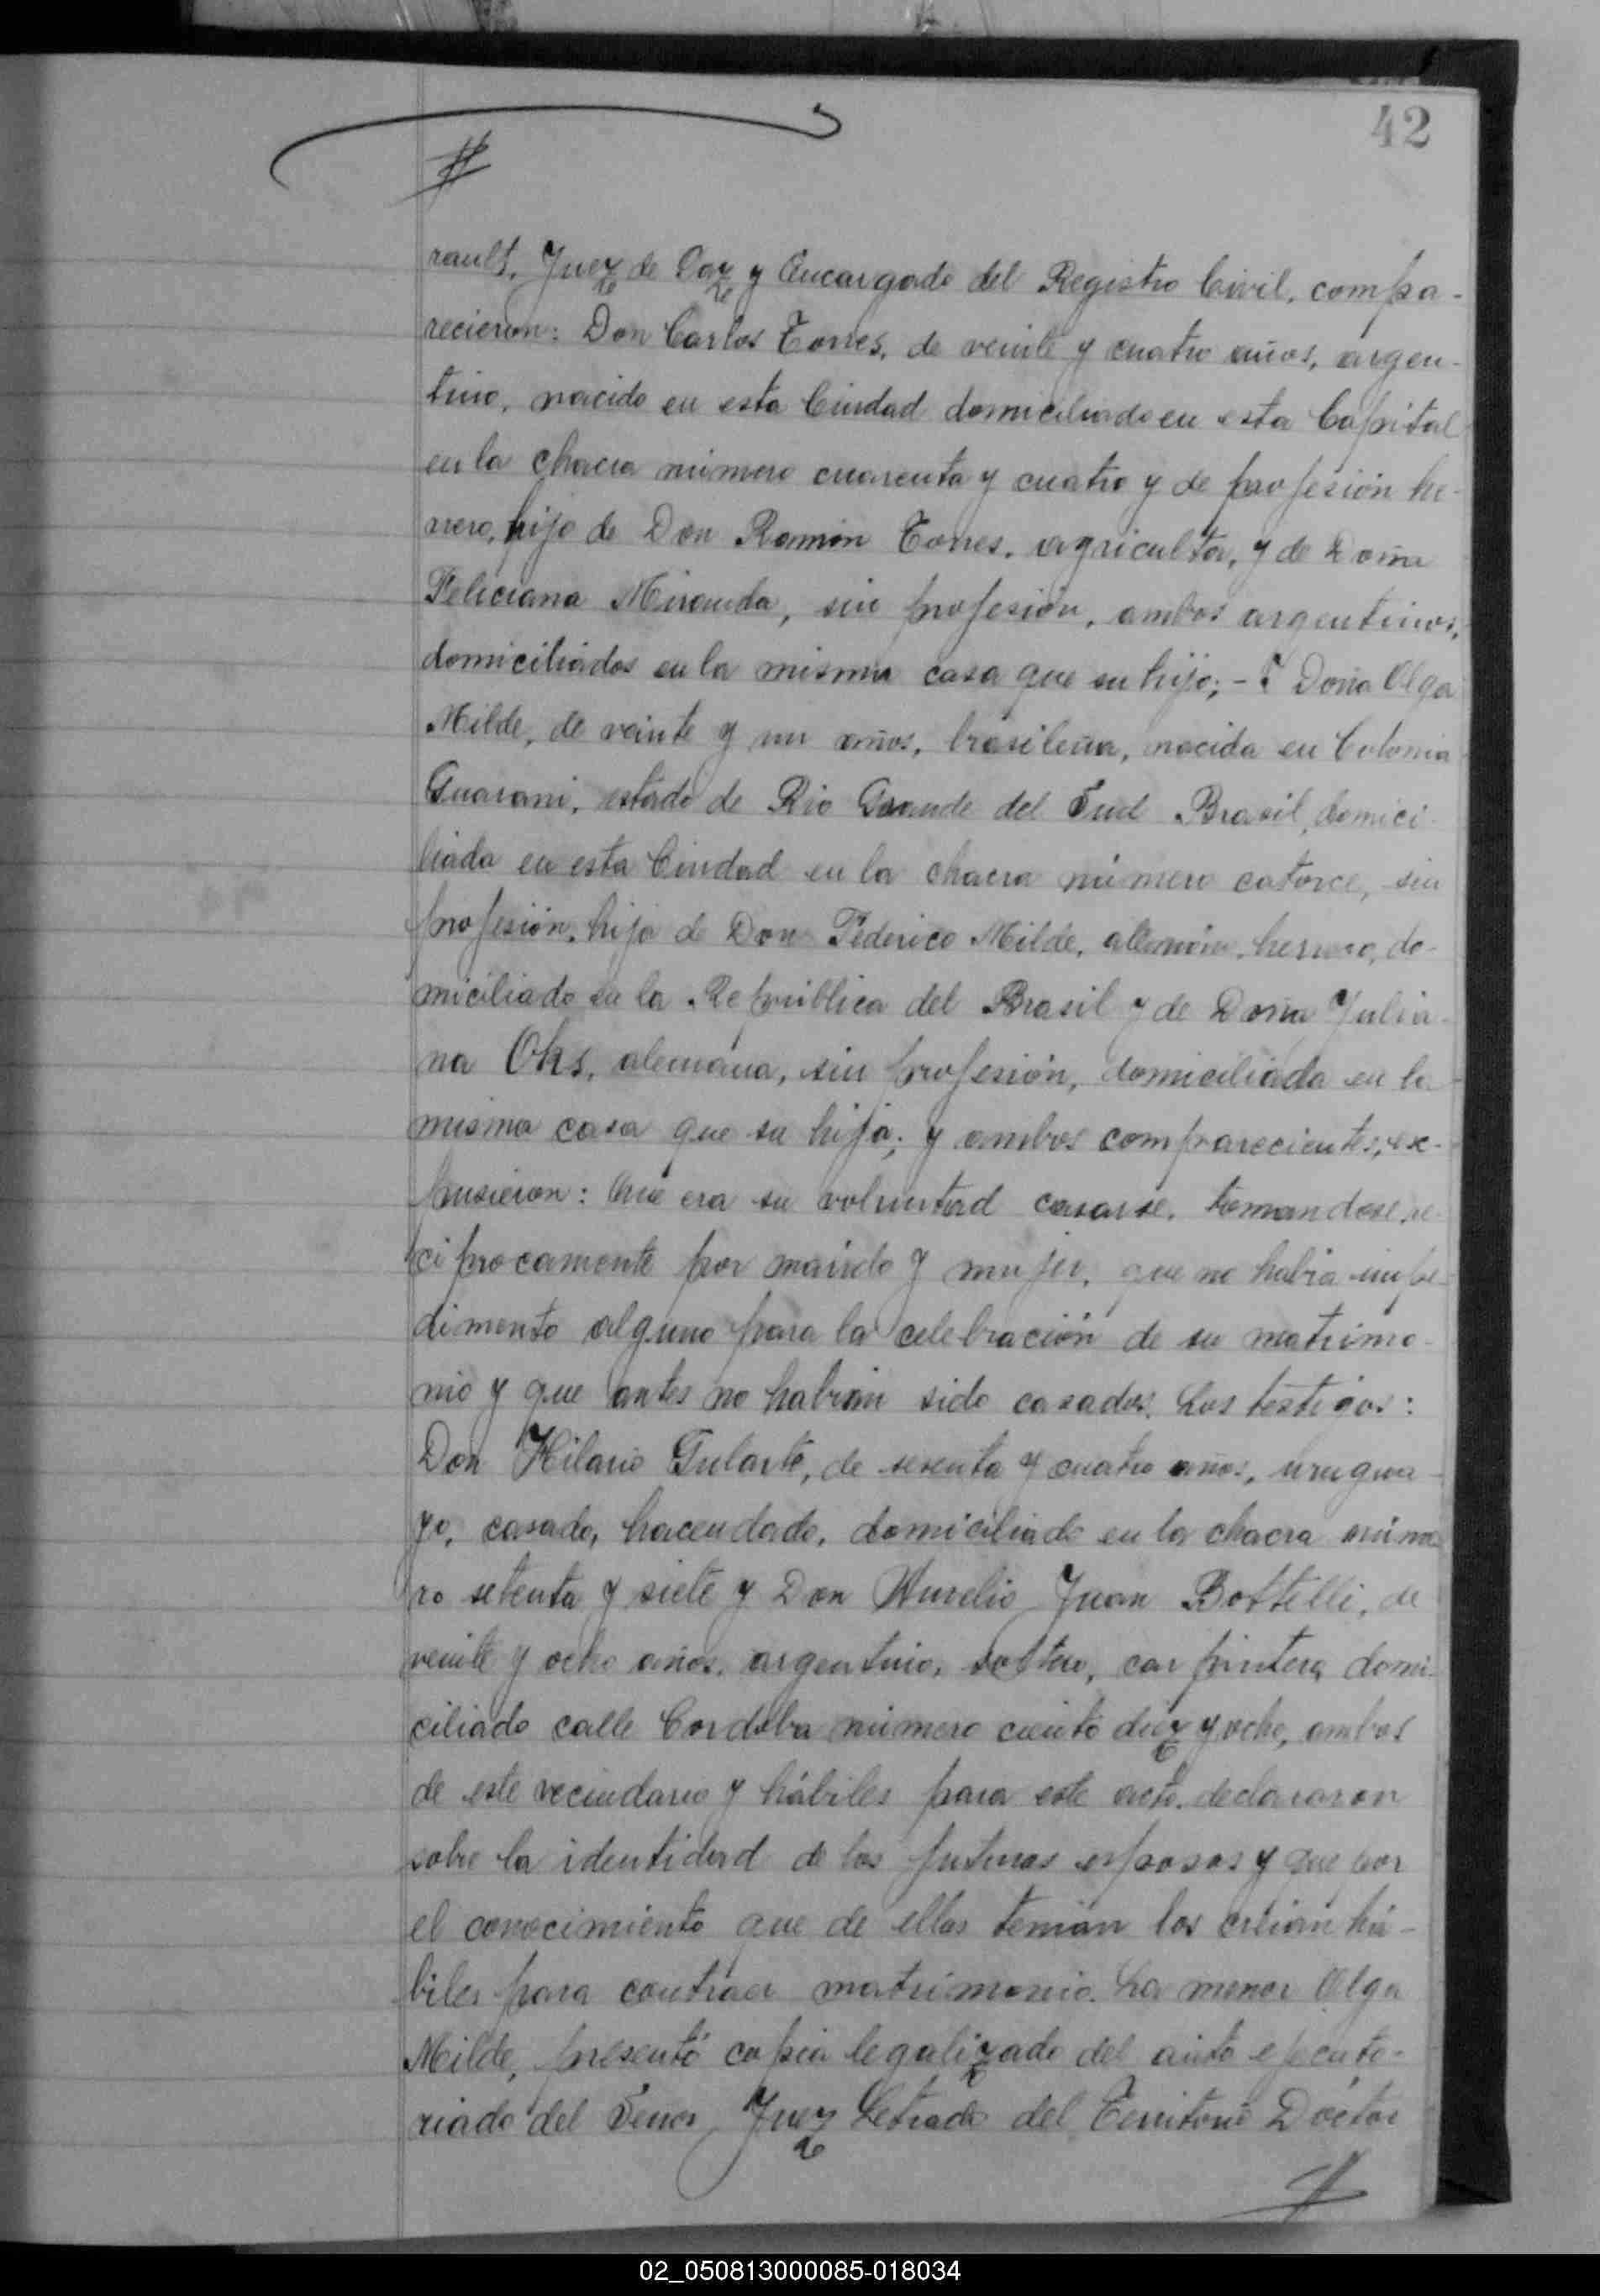 42
rault, Juez de Paz y Encargado del Registro Civil, compa-
recieron: Don Carlos Torres, de veinte y cuatro años, argen-
tino, nacido en esta Ciudad domiciliado en esta Capital
en la chacra número cuarenta y cuatro y de profesión he-
rrero, hijo de Don Ramón Torres, agricultor, y de Doña
Feliciana Miranda, sin profesión, ambos argentinos,
domiciliados en la misma casa que su hijo; - Y Doña Olga
Milde, de veinte y un años, brasileña, nacida en Colonia
Guarani, estado de Rio Grande del Sud Brasil, domici-
liada en esta Ciudad en la chacra número catorce, sin
profesión, hija de Don Federico Milde, alemán, herrero, do-
miciliado en la República del Brasil y de Doña Julia-
na Ohs, alemana, sin profesión, domiciliada en la
misma casa que su hija; y ambos comparecientes, ex-
pusieron: Que era su voluntad casarse, tomandose re-
ciprocamente por marido y mujer, que no habia impe-
dimento alguno para la celebración de su matrimo-
nio y que antes no habian sido casados. Los testigos:
Don Hilario Gularte, de sesenta y cuatro años, urugua-
yo, casado, hacendado, domiciliado en la chacra núme-
ro setenta y siete y Don Aurelio Juan Bottelli, de
veinte y ocho años, argentino, soltero, carpintero, domi-
ciliado calle Cordoba número ciento diez y ocho, ambos
de este vecindario y hábiles para este acto, declararon
sobre la identidad de los futuros esposos y que por
el conocimiento que de ellos tenian los creian há-
biles para contraer matrimonio. La menor Olga
Milde, presentó copia legalizado del auto ejecuto-
riado del Señor Juez Letrado del Territorio Doctor
02_050813000085-018034